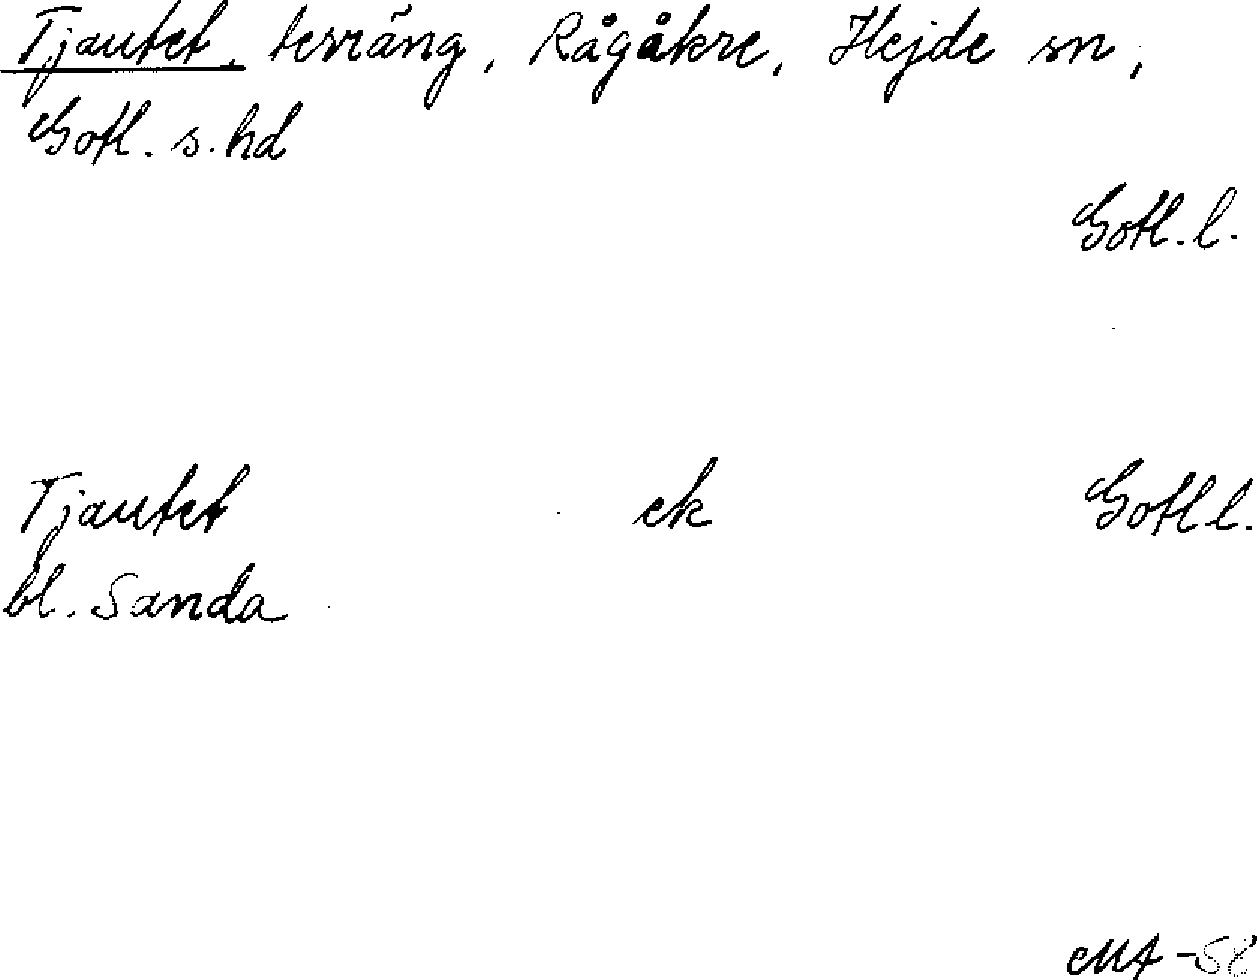 Tjautet, terräng, Rågåkre, Hejde sn,
Gotl. s. hd
Gotl. l.
Tjautet ek Gotl l.
bl. Sanda
MA -58